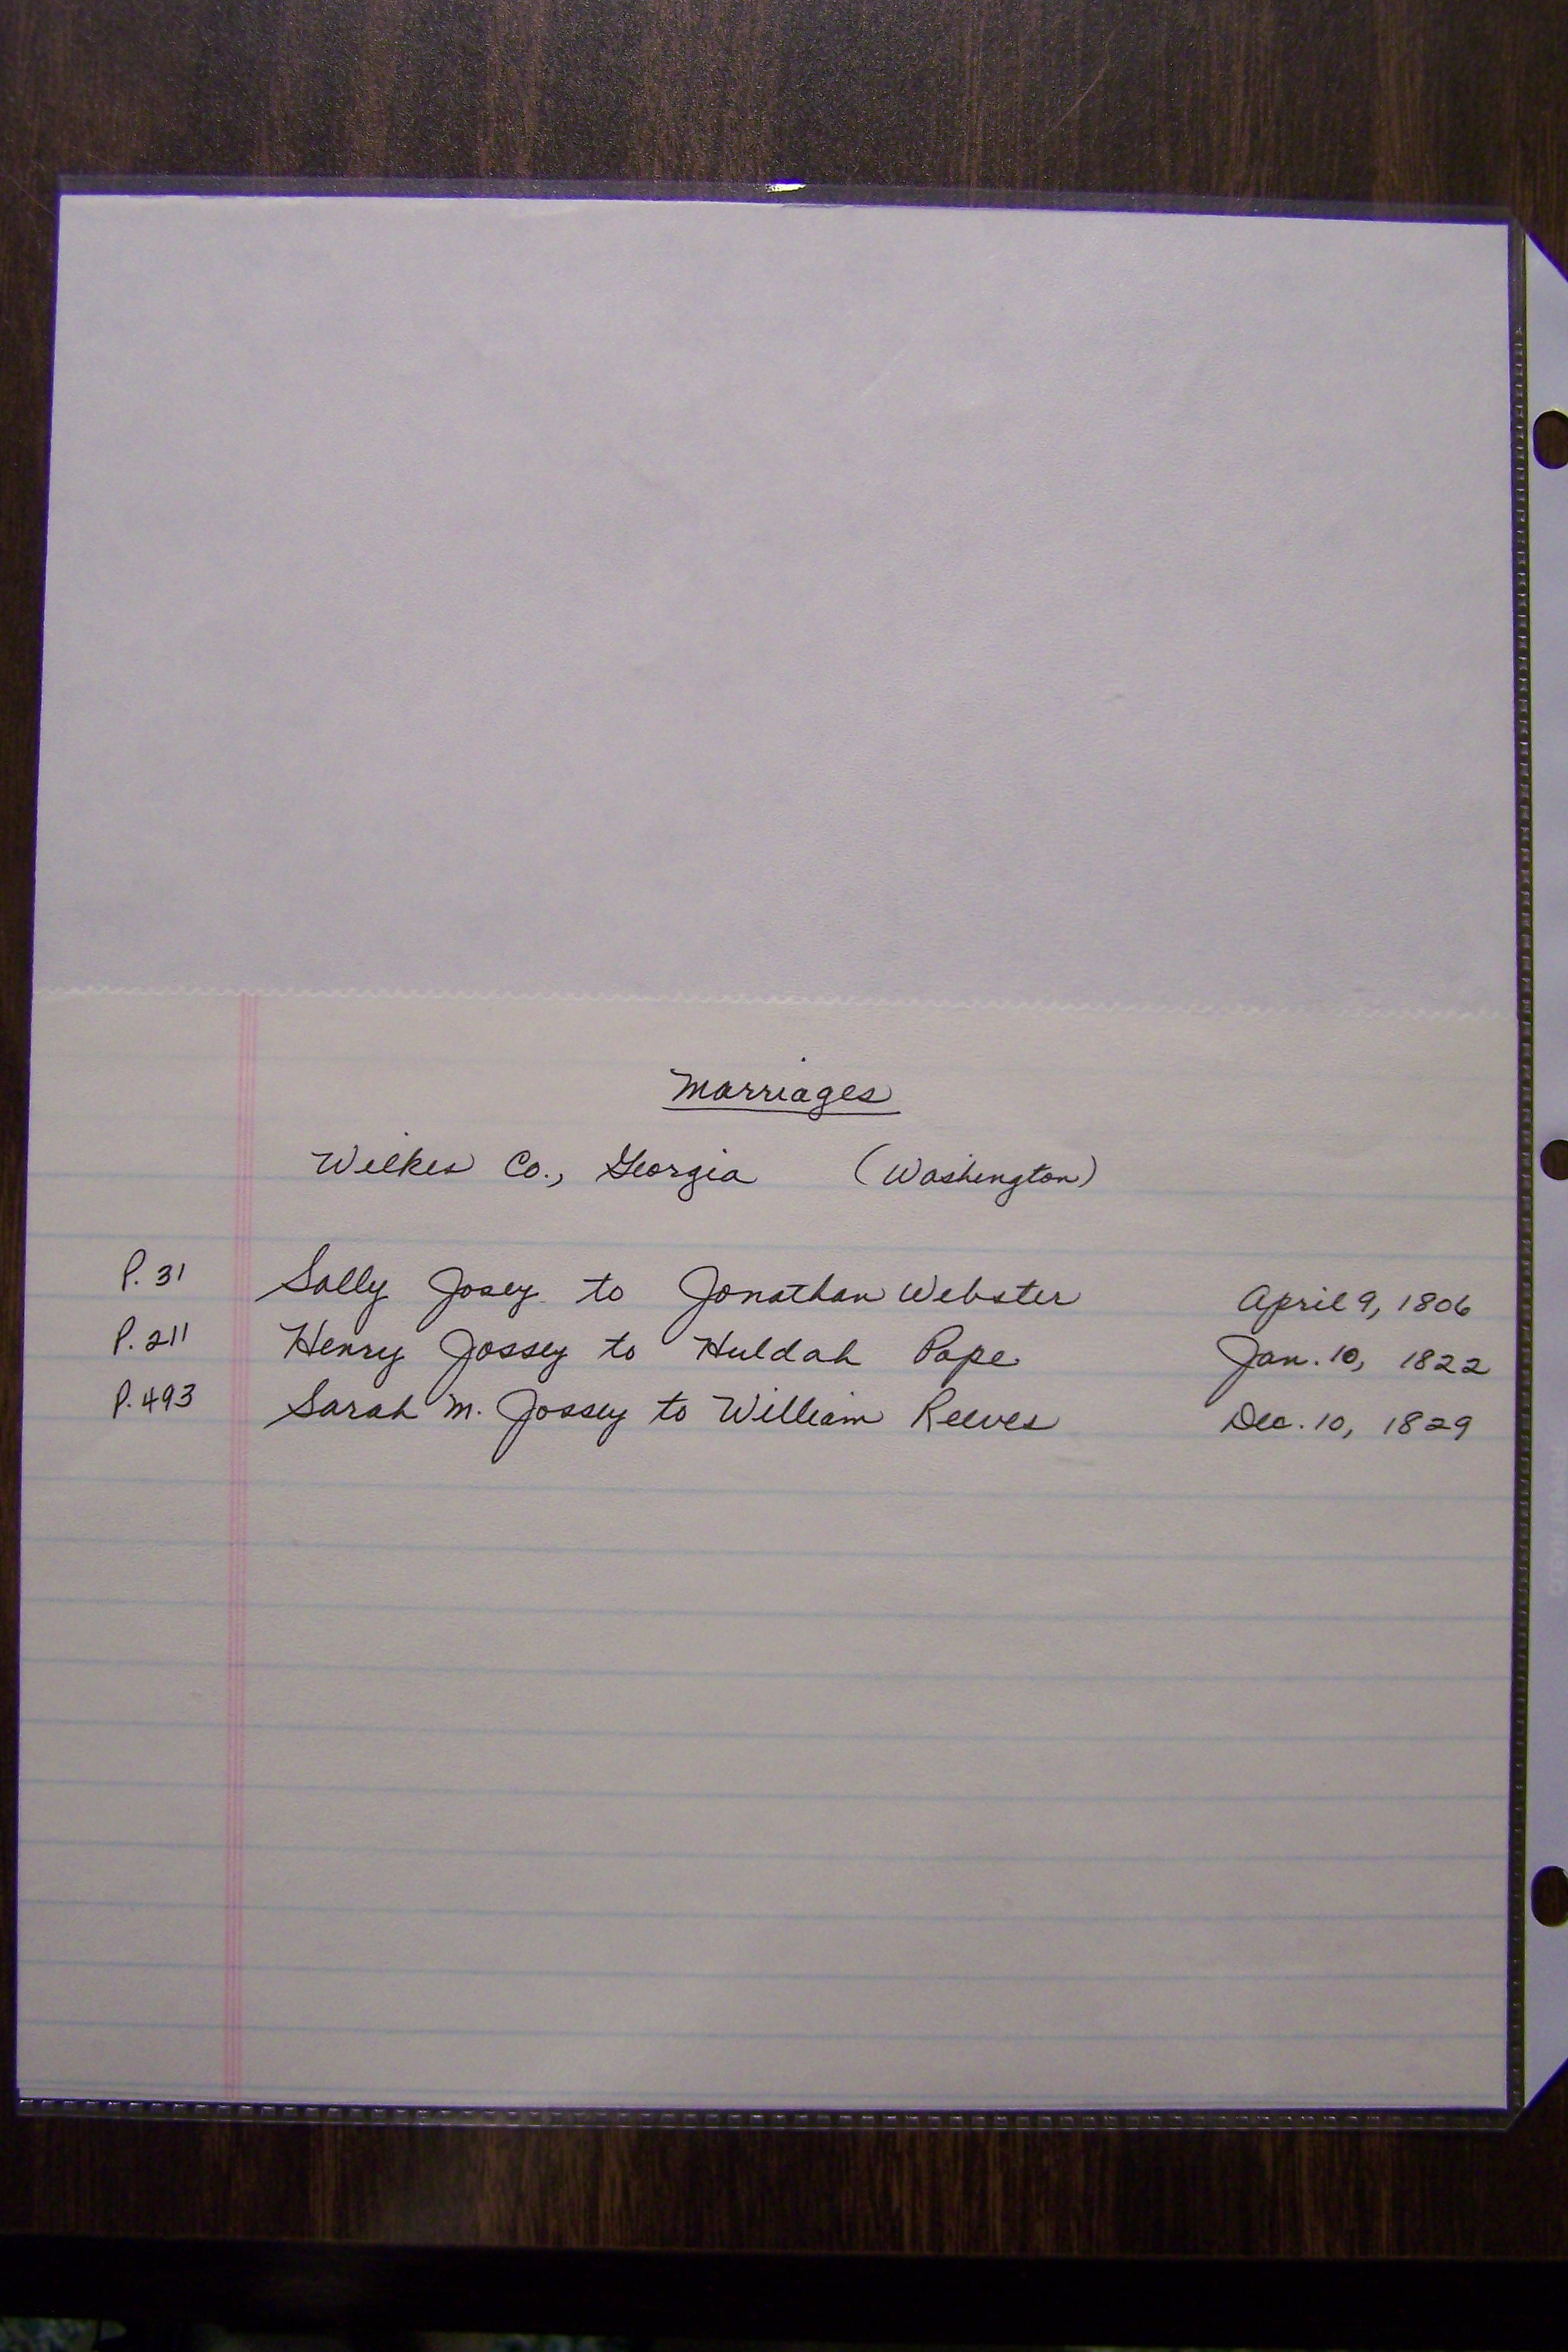 Marriages
Wilkes Co., Georgia (Washington)
P. 31 Sally Josey to Jonathan Webster April 9, 1806
P. 211 Henry Jossey to Huldah Pope Jan. 10, 1822
P. 493 Sarah M. Jossey to William Reeves Dec. 10, 1829